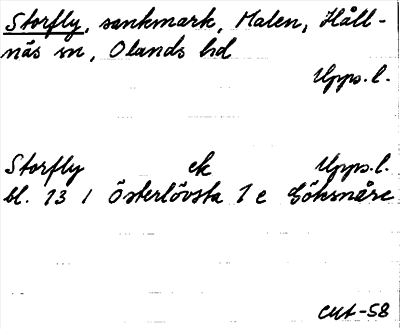 Storfly, sankmark, Malen, Håll-
näs sn, Olands hd
Upps.l.
Storfly ek Upps.l.
bl. 13 / Österlövsta 1 c
-58